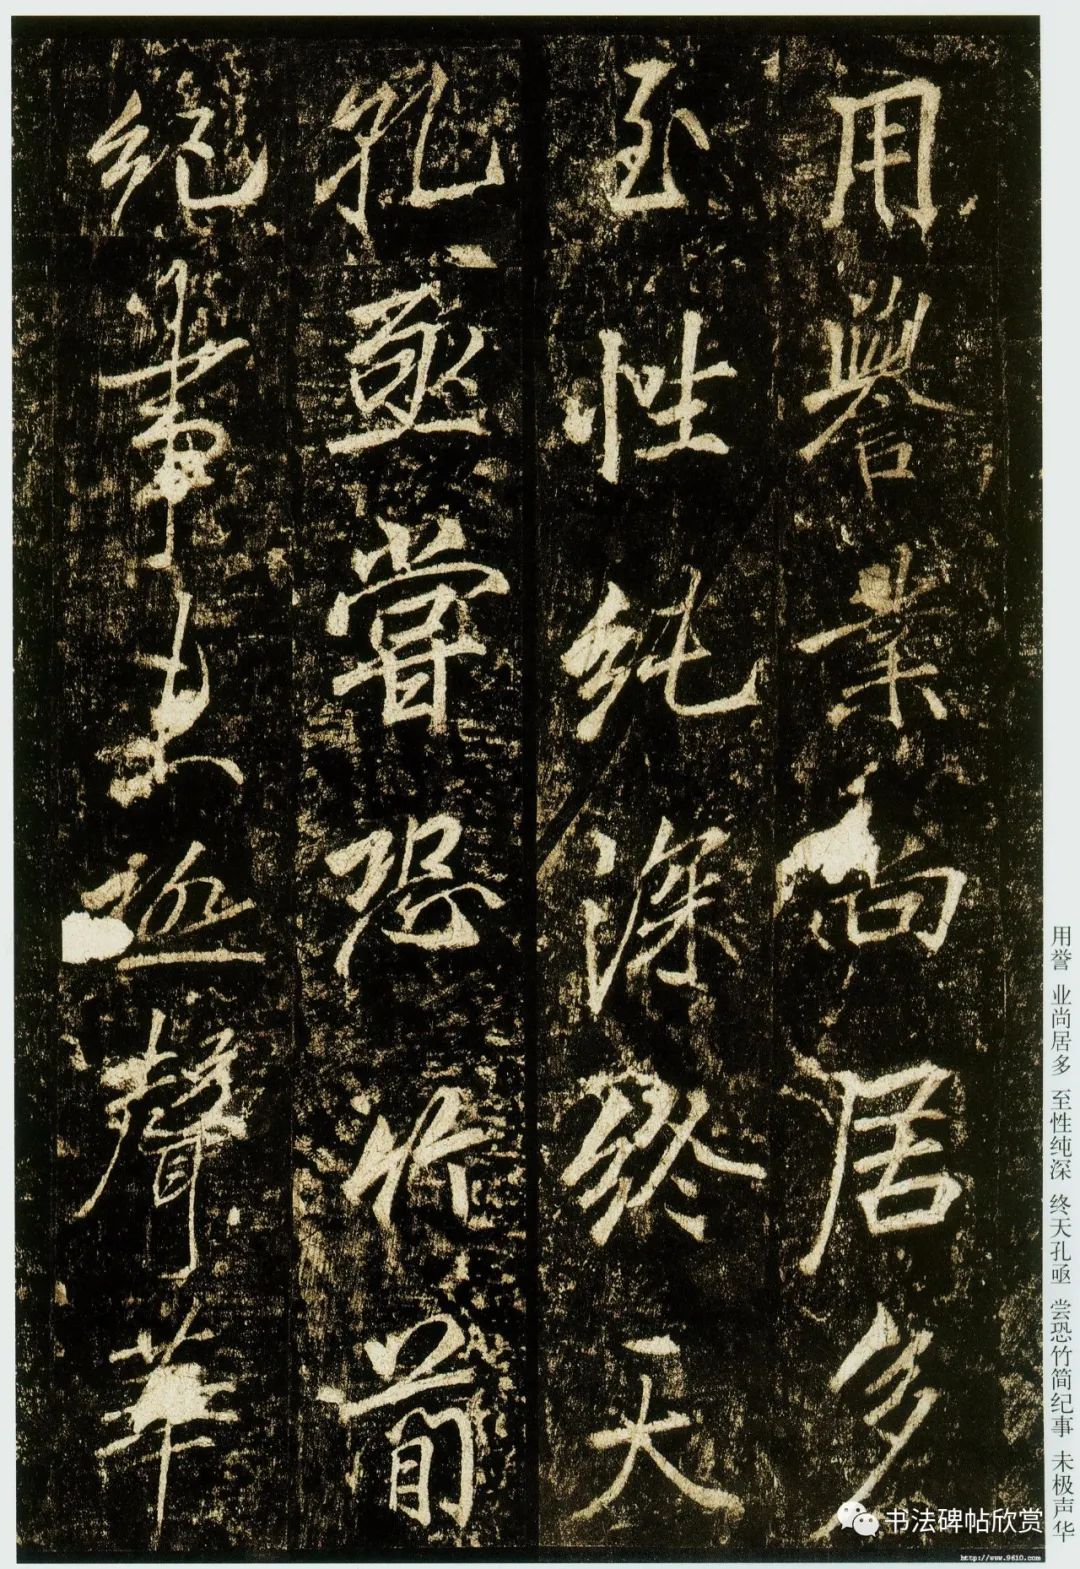 用譽業尚居多
至性純深終天
孔亟嘗恐竹簡
紀事未極聲華
用誉 业尚居多 至性纯深 终天孔亟 尝恐竹简纪事 未极声华
书法碑帖欣赏
http://www.9610.com/